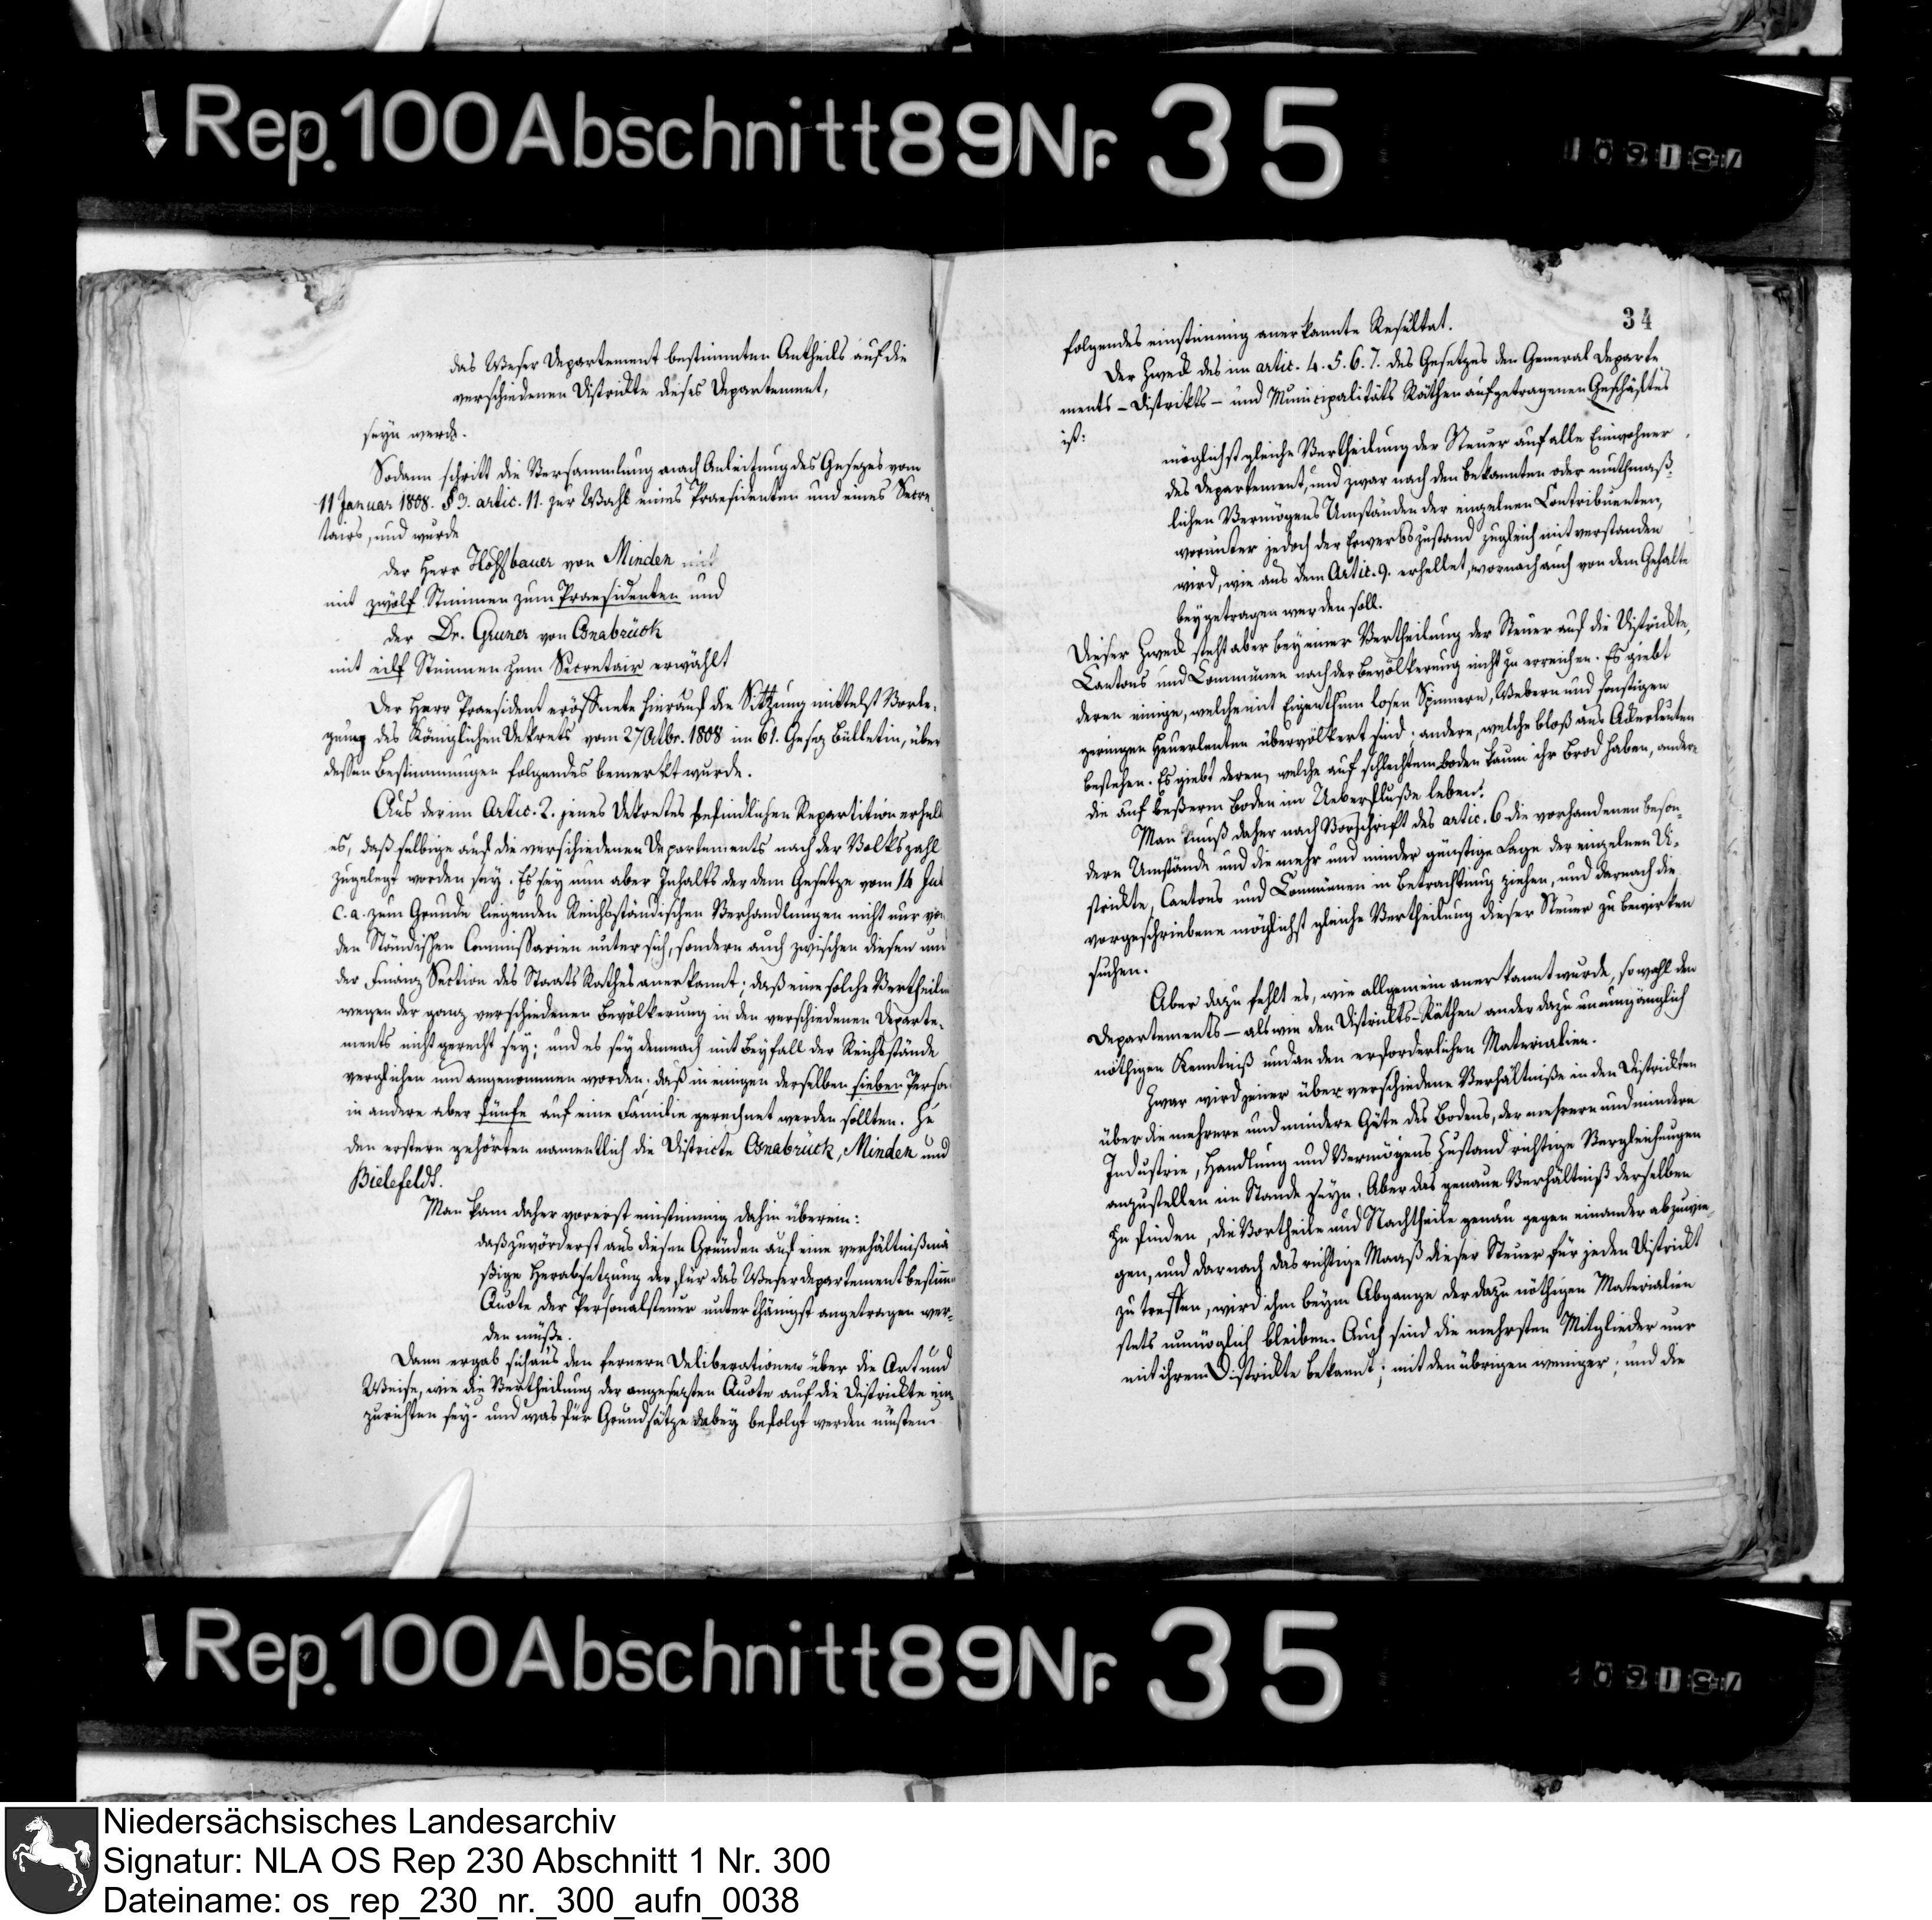 Rep. 100 Abschnitt 89 Nr. 35
das Weser Departement bestimmten Antheils auf die
verschiedenen Distrikte dieses Departement,
seyn werde.
Sodann schritt die Versammlung nach Anleitung des Gesezes vom
11 Januar 1808. § 3. artic. 11. zur Wahl eines Praesidenten und eines Secre-
tairs, und wurde
der Herr Hoffbauer von Minden mit
mit zwölf Stimmen zum Praesidenten und
der Dr. Gruner von Osnabrück
mit eilf Stimmen zum Secretair erwählt
Der Herr Praesident eröffnete hierauf die Sitzung mittelst Vorle-
gung des Königlichen Dekrets vom 27 Octbr. 1808 im 61. Gesez Bülletin, über
dessen Bestimmungen folgendes bemerkt wurde.
Aus der im Artic. 2. jenes Dekretes befindlichen Repartition erhelle
es, daß selbige auf die verschiedenen Departements nach der Volkszahl
zugelegt worden sey. Es sey nun aber Inhalts der dem Gesetze vom 14 Jul
c. a. zum Grunde liegenden Reichsständischen Verhandlungen nicht nur von
den Ständischen Commissarien unter sich, sondern auch zwischen diesen und
der Finanz Section des Staats Rathes anerkannt; daß eine solche Vertheilu
wegen der ganz verschiedenen Bevölkerung in den verschiedenen Departe-
ments nicht gerecht sey; und es sey demnach mit Beyfall der Reichsstände
verglichen und angenommen worden, daß in einigen derselben sieben Perso
in andere aber fünfe auf eine Familie gerechnet werden sollten. Zu
den erstern gehörten namentlich die Districte Osnabrück, Minden und
Bielefeldt.
Man kam daher vorerst einstimmig dahin überein:
daß zuvörderst aus diesen Gründen auf eine verhältnißmä
ßige Herabsetzung der für das Weserdepartement bestimm
Quote der Personalsteuer unterthänigst angetragen wer-
den müße.
Dann ergab sich aus den fernern Deliberationen über die Art und
Weise, wie die Vertheilung der angesezten Quote auf die Distrikte ein-
zurichten sey, und was für Grundsätze dabey befolgt werden müsten
34
folgendes einstimmig anerkannte Resultat.
Der Zweck des im artic. 4. 5. 6. 7. des Gesetzes den General Departe
ments- Distrikts- und Municipalitäts Räthen aufgetragenen Geschäftes
ist:
möglichst gleiche Vertheilung der Steuer auf alle Einwohner
des Departement, und zwar nach den bekannten oder muthmaß-
lichen Vermögens Umständen der einzelnen Contribuenten,
worunter jedoch der Erwerbszustand zugleich mit verstanden
wird, wie aus dem Artic. 9. erhellet, wornach auch von dem Gehalte
beygetragen werden soll.
Dieser Zweck steht aber bey einer Vertheilung der Steuer auf die Distrikte,
Cantons und Communen nach der Bevölkerung nicht zu erreichen. Es giebt
deren einige, welche mit Eigenthum losen Spinnern, Webern und sonstigen
geringen Heuerleuten übervölkert sind; andere, welche bloß aus Ackerleuten
bestehen. Es giebt deren, welche auf schlechtem Boden kaum ihr Brod haben, andere
die auf beßerm Boden im Ueberfluße leben.
Man muß daher nach Vorschrift des artic. 6 die vorhandenen beson-
dern Umstände und die mehr und minder günstige Lage der einzelnen Di-
strickte, Cantons und Communen in Betrachtung ziehen, und darnach die
vorgeschriebene möglichst gleiche Vertheilung dieser Steuer zu bewirken
suchen.
Aber dazu fehlt es, wie allgemein anerkannt wurde, sowohl den
Departements- als wie den Districkts-Räthen an der dazu unumgänglich
nöthigen Kenntniß und an den erforderlichen Materialien.
Zwar wird jener über verschiedene Verhältniße in den Districkten
über die mehrere und mindere Güte des Bodens, der mehrern und mindern
Industrie, Handlung und Vermögens Zustand richtige Vergleichungen
anzustellen im Stande seyn. Aber das genaue Verhältniß derselben
zu finden, die Vortheile und Nachtheile genau gegen einander abzuwie-
gen, und darnach das richtige Maaß dieser Steuer für jeden Districkt
zu treffen, wird ihm beym Abgange der dazu nöthigen Materialien
stets unmöglich bleiben. Auch sind die mehrsten Mitglieder nur
mit ihrem Districkte bekannt; mit den übrigen weniger; und die
Rep. 100 Abschnitt 89 Nr. 35
Niedersächsisches Landesarchiv
Signatur: NLA OS Rep 230 Abschnitt 1 Nr. 300
Dateiname: os_rep_230_nr._300_aufn_0038